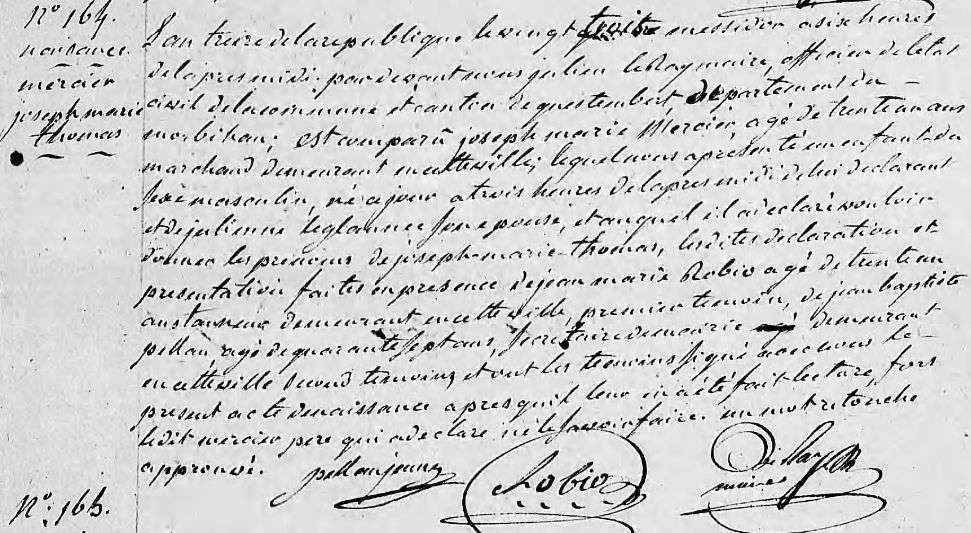 N° 164.
naissance
mercier
joseph marie
thomas
L'an treize de la republique le vingt trois messidor a six heures
de lapres midi. par devant nous julien le Ray maire, officier de letat
civil de la commune et canton de questembert departement du
morbihan; est comparû joseph marie Mercier, agé de trente un ans
marchand demeurant en cette ville, lequel nous a presenté un enfant du
sexe masculin, né ce jour a trois heures de lapres midi de lui declarant
et de julienne le glaunec son epouse, et auquel il a declaré vouloir
donner les prenoms de joseph-marie-thomas, lesdites declaration et
presentation faites en presence de jean marie Robio agé de trente un
ans tanneur demeurant en cette ville, premier temoin, de jean baptiste
pellan agé de quarante sept ans, secretaire de mairie demeurant
en cette ville second temoin; et ont les temoins signé avec nous le
present acte de naissance apres quil leur en a été fait lecture, fors
ledit mercier pere qui a declaré ne le savoir faire. un mot retouché
approuvé.
pellan jeune
Robio
maire
N° 165.